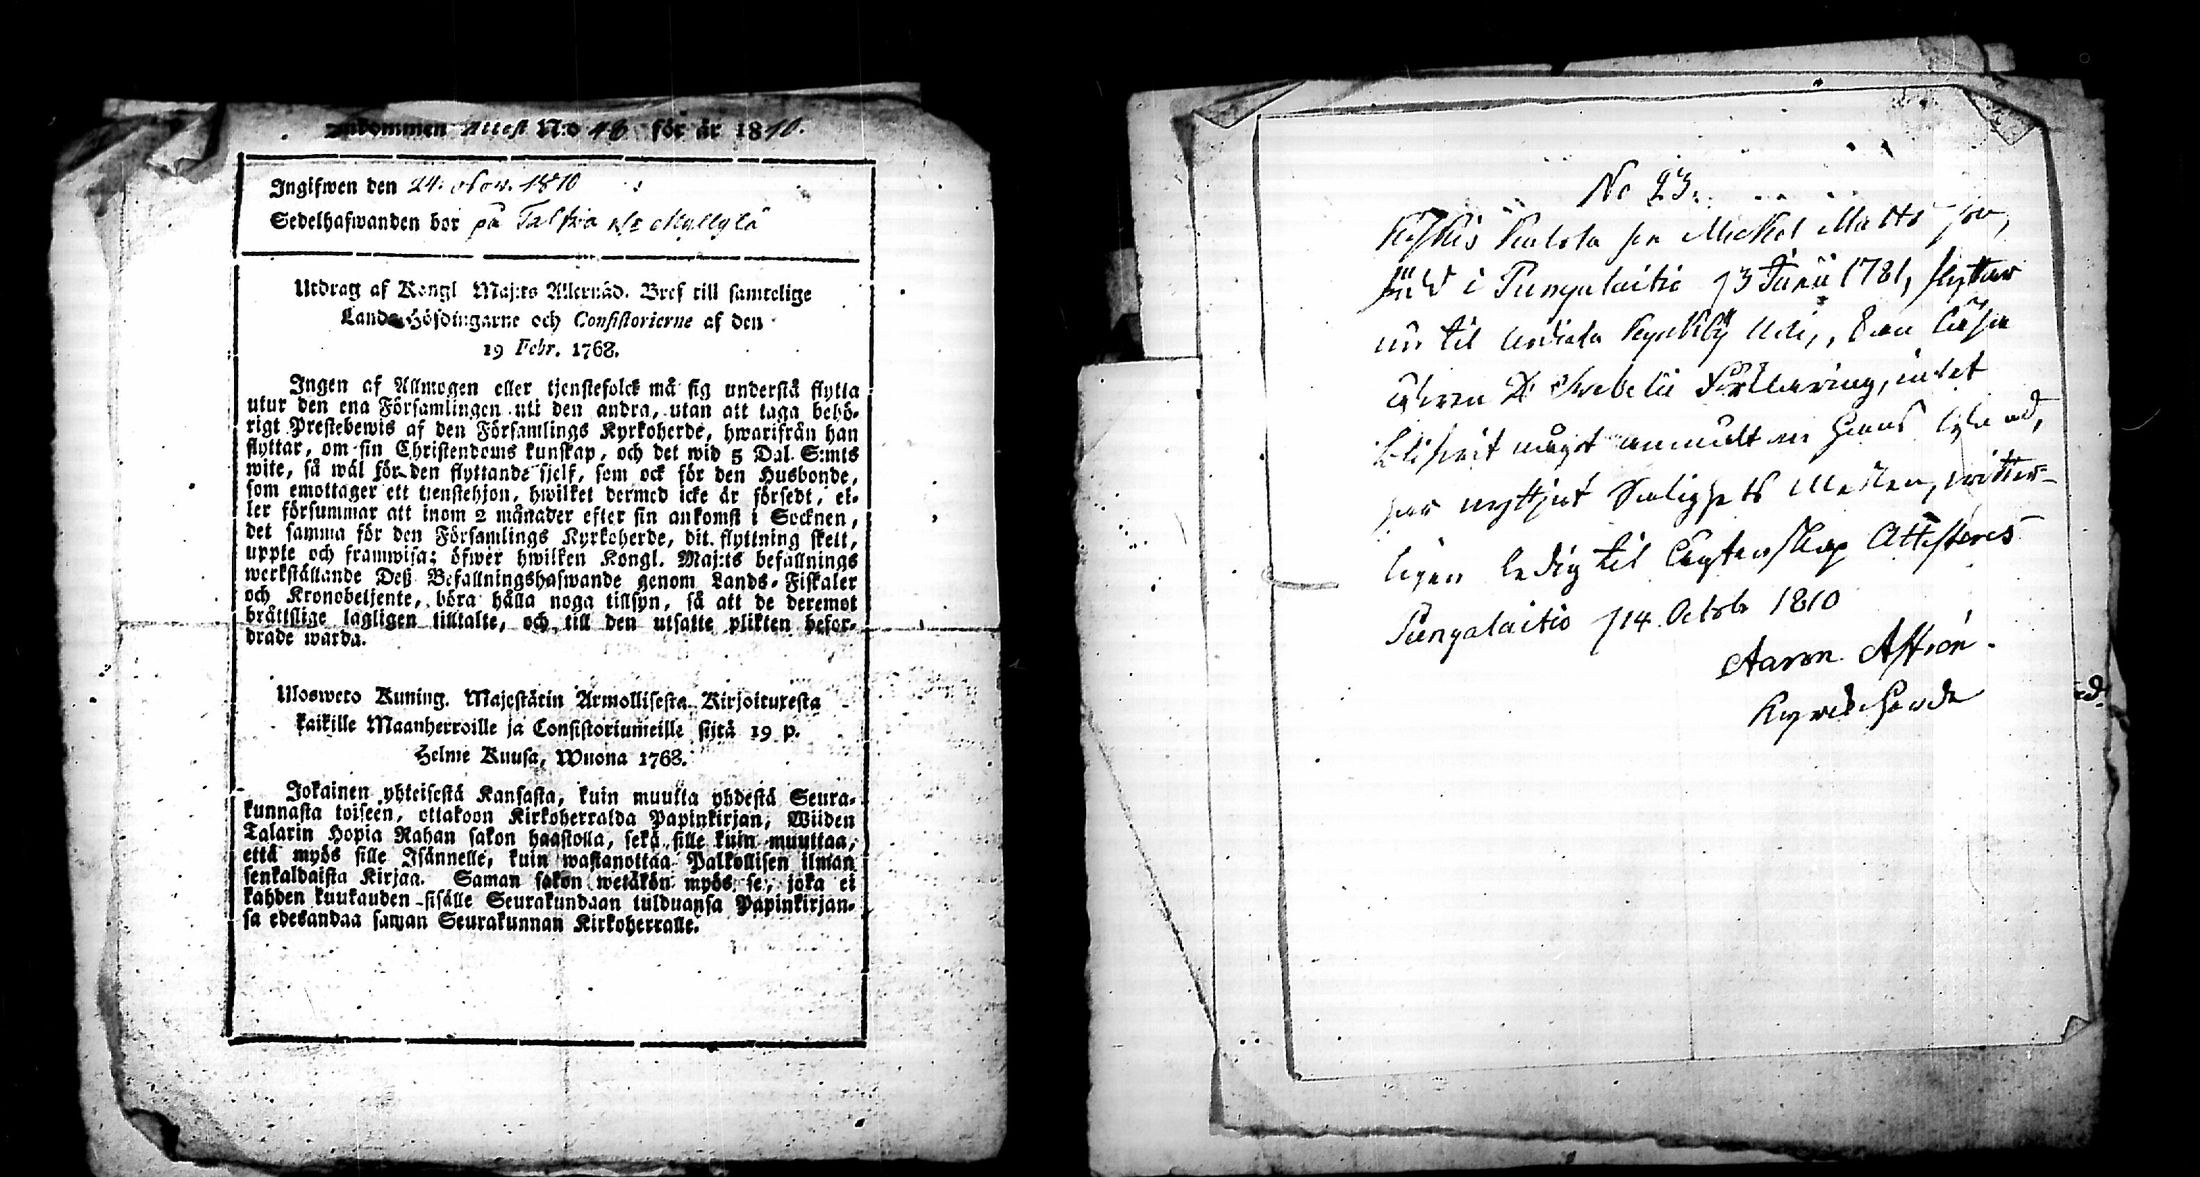 Inkommen Attest N:o 48 för år 1810.
Ingifwen den 24. Nov. 1810
Sedelhafwanden bor på Talkia Myllylä
Utdrag af Kongl Maj:ts Allernåd. Bref till samtelige
Lands-Höfdingarne och Consistorierne af den
19 Febr. 1768.
Ingen af Allmogen eller tjenstefolck må sig understå flytta
utur den ena Församlingen uti den andra, utan att taga behö-
rigt Prestebewis af den Församlings Kyrkoherde, hwarifrån han
flyttar, om sin Christendoms kunskap, och det wid 5 Dal. S:mts
wite, så wäl för den flyttande sjelf, som ock för den Husbonde,
som emottager ett tienstehjon, hwilket dermed icke är försedt, el-
ler försummar att inom 2 månader efter sin ankomst i Socknen,
det samma för den Församlings Kyrkoherde, dit flyttning skett,
uppte och framwisa; öfwer hwilken Kongl. Maj:ts befallnings
werkställande Deß Befallningshafwande genom Lands-Fiskaler
och Kronobetjente, böra hålla noga tillsyn, så att de deremot
brättslige lagligen tilltalte, och till den utsatte plikten befor-
drade warda.
Ulosweto Kuning. Majestätin Armollisesta Kirjoituxesta
kaikille Maanherroille ja Consistoriumeille siitä 19 p.
Helme Kuusa, Wuona 1768.
Jokainen yhteisestä Kansasta, kuin muutta yhdestä Seura-
kunnasta toiseen, ottakoon Kirkoherralda Papinkirjan, Wiiden
Talarin Hopia Rahan sakon haastolla, sekä sille kuin muuttaa,
että myös sille Isännelle, kuin wastanottaa Palkollisen ilman
senkaldaista Kirjaa. Saman sakon wetäkön myös se, joka ei
kahden kuukauden sisälle Seurakundaan tulduansa Papinkirjan-
sa edesandaa saman Seurakunnan Kirkoherralle.
No 23.
son Mickel Matts son,
född i Pungalaitio 3 Junii 1781, flyttar
nu til Kyrkby Han läser
utan D: Svebelii Förklaring, intet
blifvit något anmält om hans lefnad,
har nyttjat Salighets Medlen, witter-
ligen ledig til Ägtenskap Attesteres
Pungalaitio 14 Octob 1810
Aaron Astrén.
Kyrckoherde